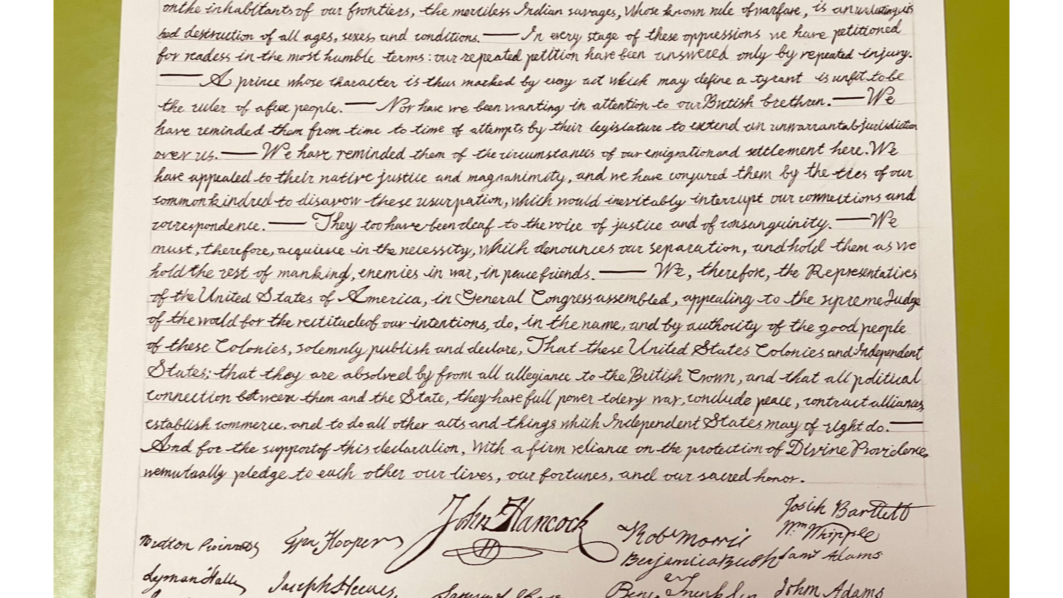 onthe inhabitants of our frontiers, the merciless Indian savages, whose known rule of warfare, is an
hed destruction of all ages, sexes and conditions. — In every stage of these oppressions we have petitioned
for readess in the most humble terms: our repeated petition have been unswered only by repeated injury.
— A prince whose character is thus marked by every act which may define a tyrant is unfit to be
the ruler of afree people. — Nor have we been wanting in attention to our British brethren. — We
have reminded them from time to time of attempts by their legislature to extend an unwarrantabjurisdiction
over us. — We have reminded them of the circumstances of our emigration and settlement here. We
have appealed to their native justice and magnanimity, and we have conjured them by the ties of our
common kindred to disavow these usurpation, which would inevitably interrupt our connections and
correspondence. — They too have been deaf to the voice of justice and of consanguinity. — We
must, therefore, acquiesce in the necessity, which denounces our separation, and hold them as we
hold the rest of mankind, enemies in war, in peace friends. — We, therefore, the Representatives
of the United States of America, in General Congress assembled, appealing to the supreme Judge
of the world for the rectitude of our intentions, do, in the name, and by authority of the good people
of these Colonies, solemnly publish and declare, That these United States Colonies and Independent
States; that they are absolved by from all allegiance to the British Crown, and that all political
connection between them and the State, they have full power to levy war, conclude peace, contract alliances,
establish commerce, and to do all other acts and things which Independent States may of right do. —
And for the support of this declaration, With a firm reliance on the protection of Divine Providence,
wemutually pledge to each other our lives, our fortunes, and our sacred honor.
John Hancock
Josiah Bartlett
Wm Whipple
Robt Morris
Wm Hooper
Benjamica Rush
Saml Adams
Lyman Hall
Joseph Hewes
Benj Franklin
John Adams